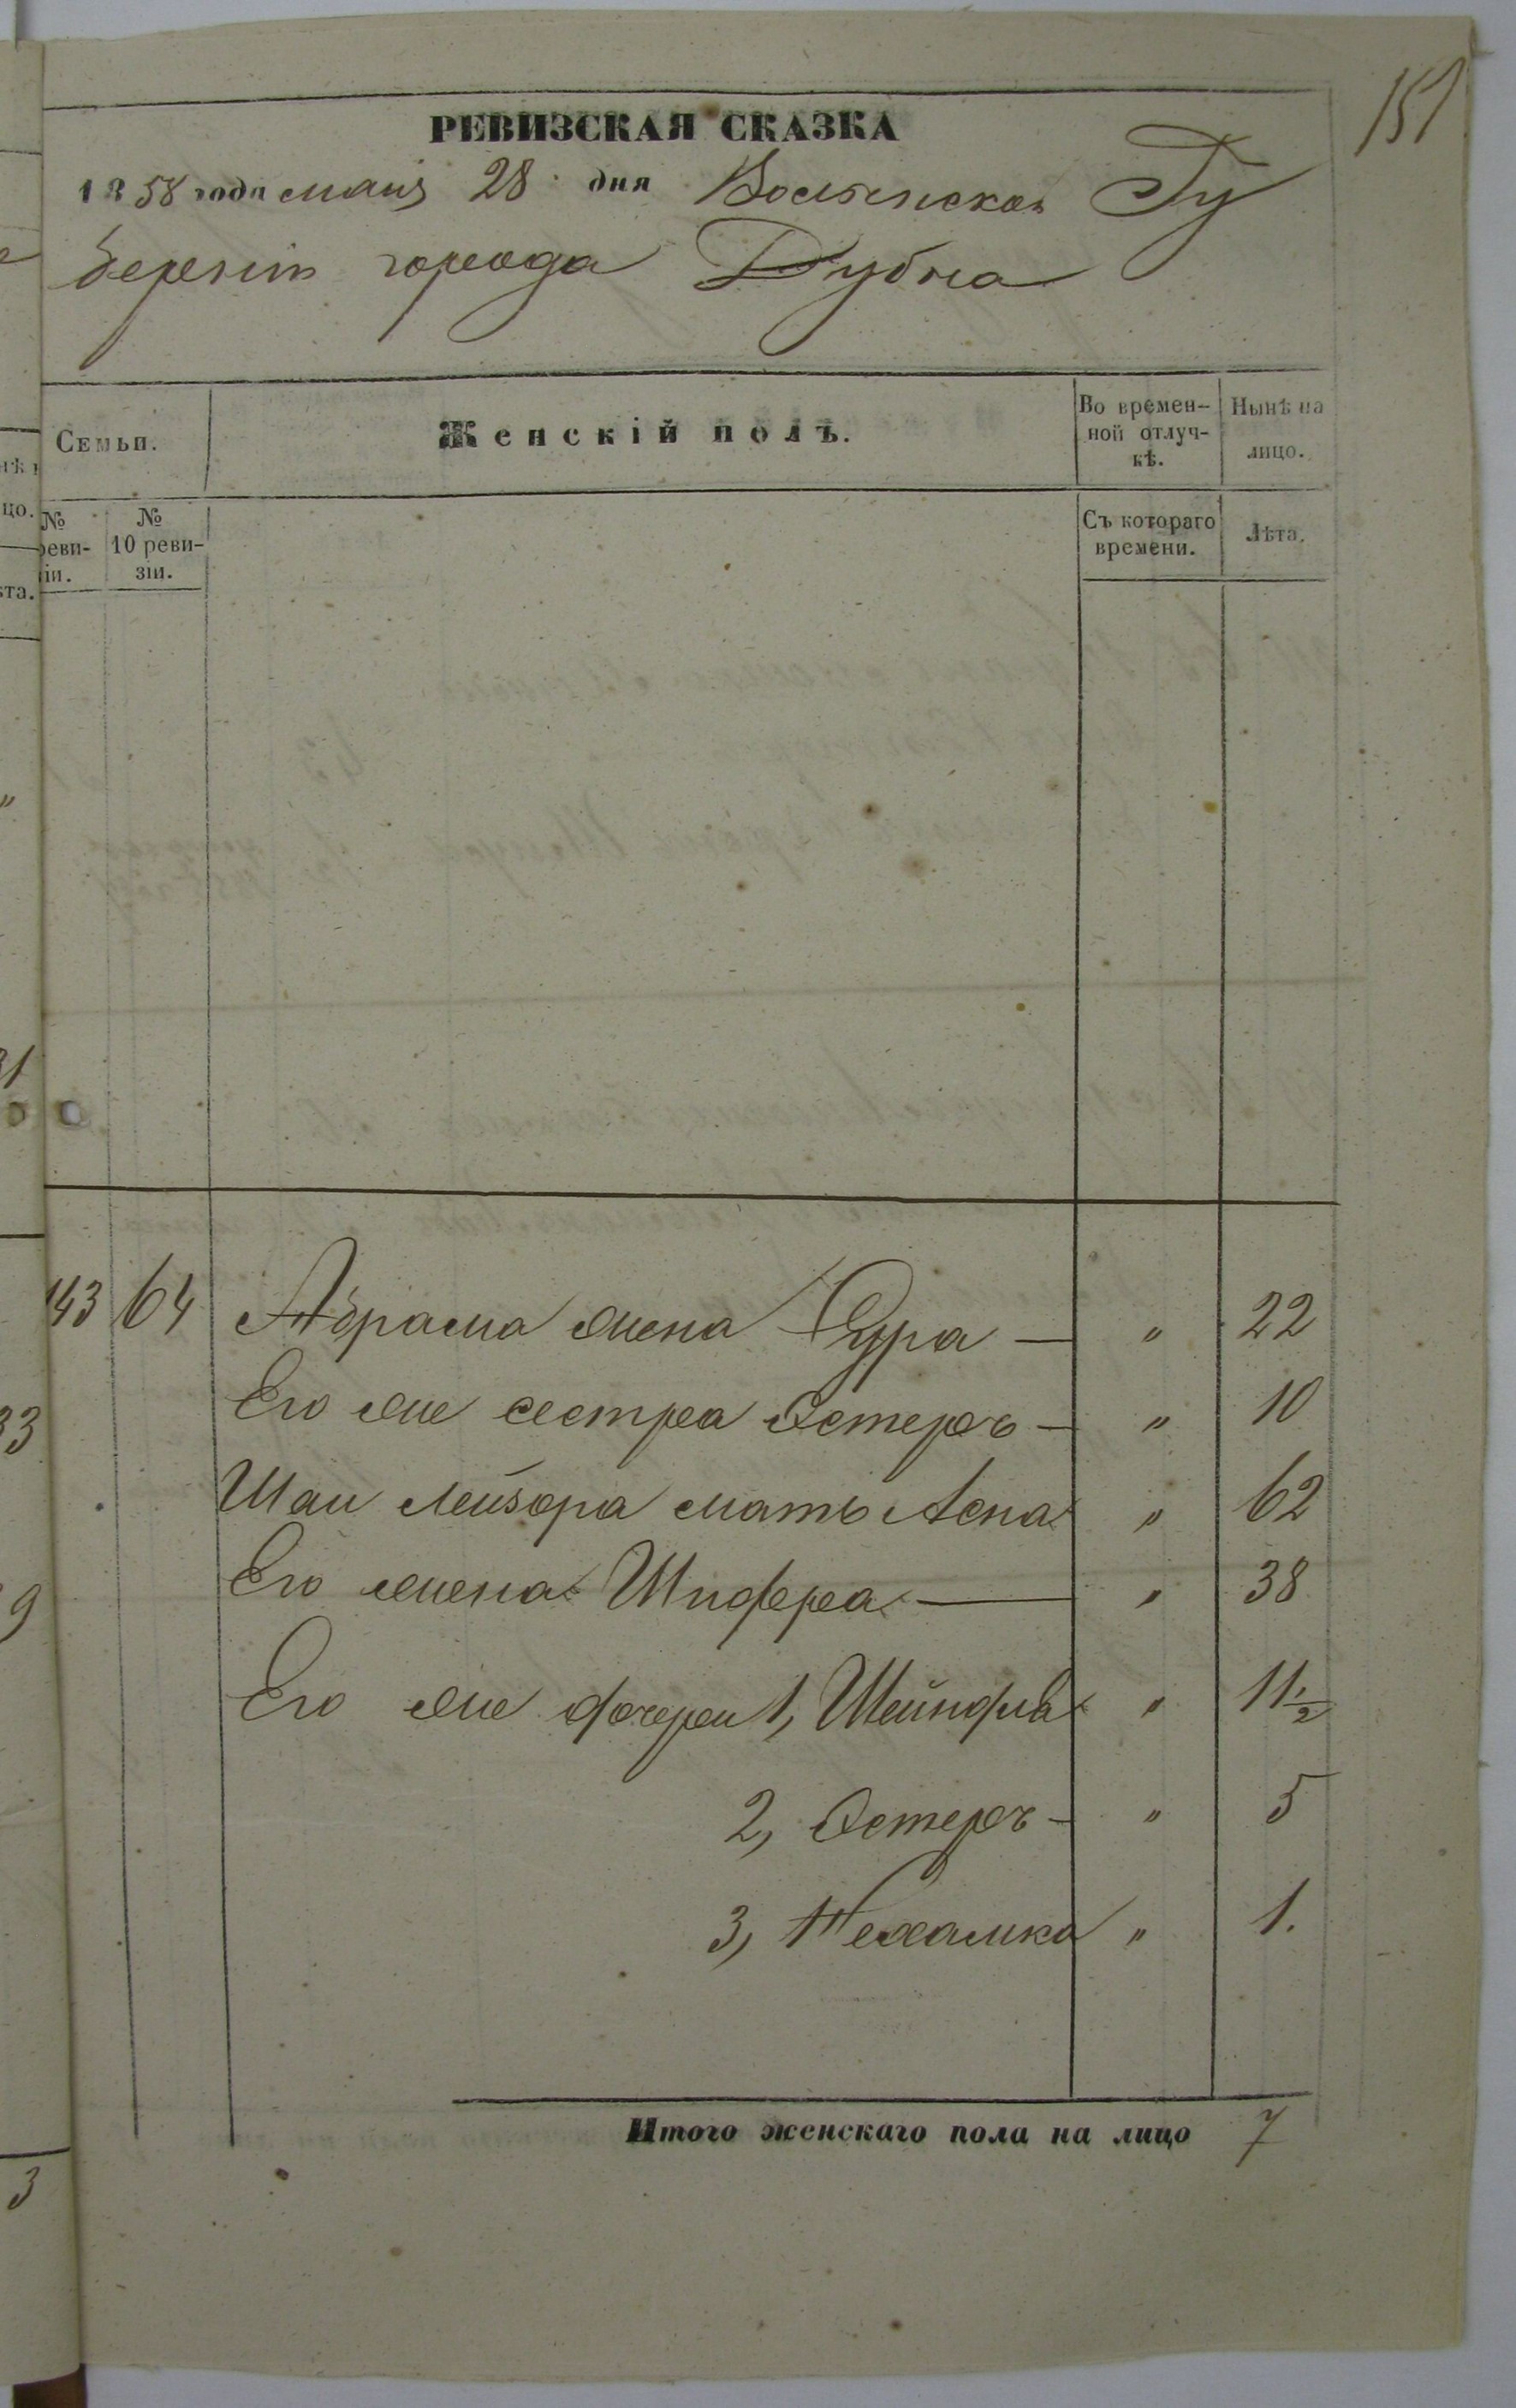 151
РЕВИЗСКАЯ СКАЗКА
1858 года мaiя 28 дня Волынской Гу
берніи города Дубна
Семьи.
Женскій полъ.
Во времен-
ной отлуч-
кѣ.
Нынѣ на
лицо.
№
реви-
зіи.
№
10 реви-
зіи.
Съ котораго
времени.
Лѣта.
143 64 Абрама жена Сура — " 22
Его же сестра Эстеръ — " 10
Шаи Лейзора мать Асна " 62
Его жена Шифра — " 38
Его же дочери 1, Шейндля " 11 1/2
2, Эстеръ — " 5
3, Нехамка " 1.
Итого женскаго пола на лицо 7